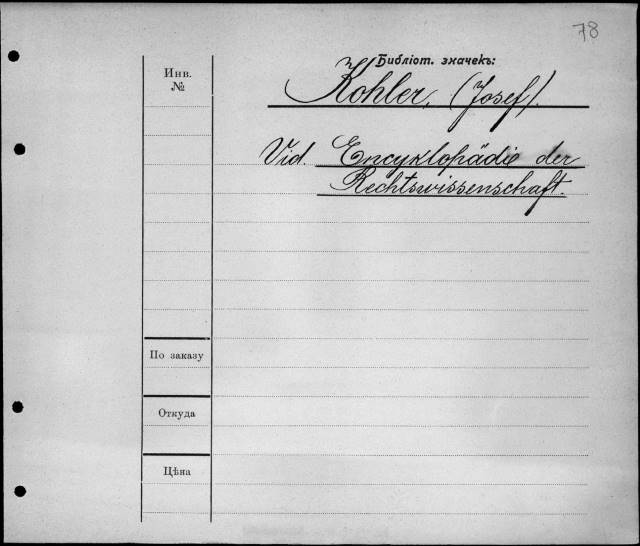 78
Библіот. значекъ:
Инв.
№
Kohler, (Josef).
Vid. Encyklopädie der
Rechtswissenschaft.
По заказу
Откуда
Цѣна